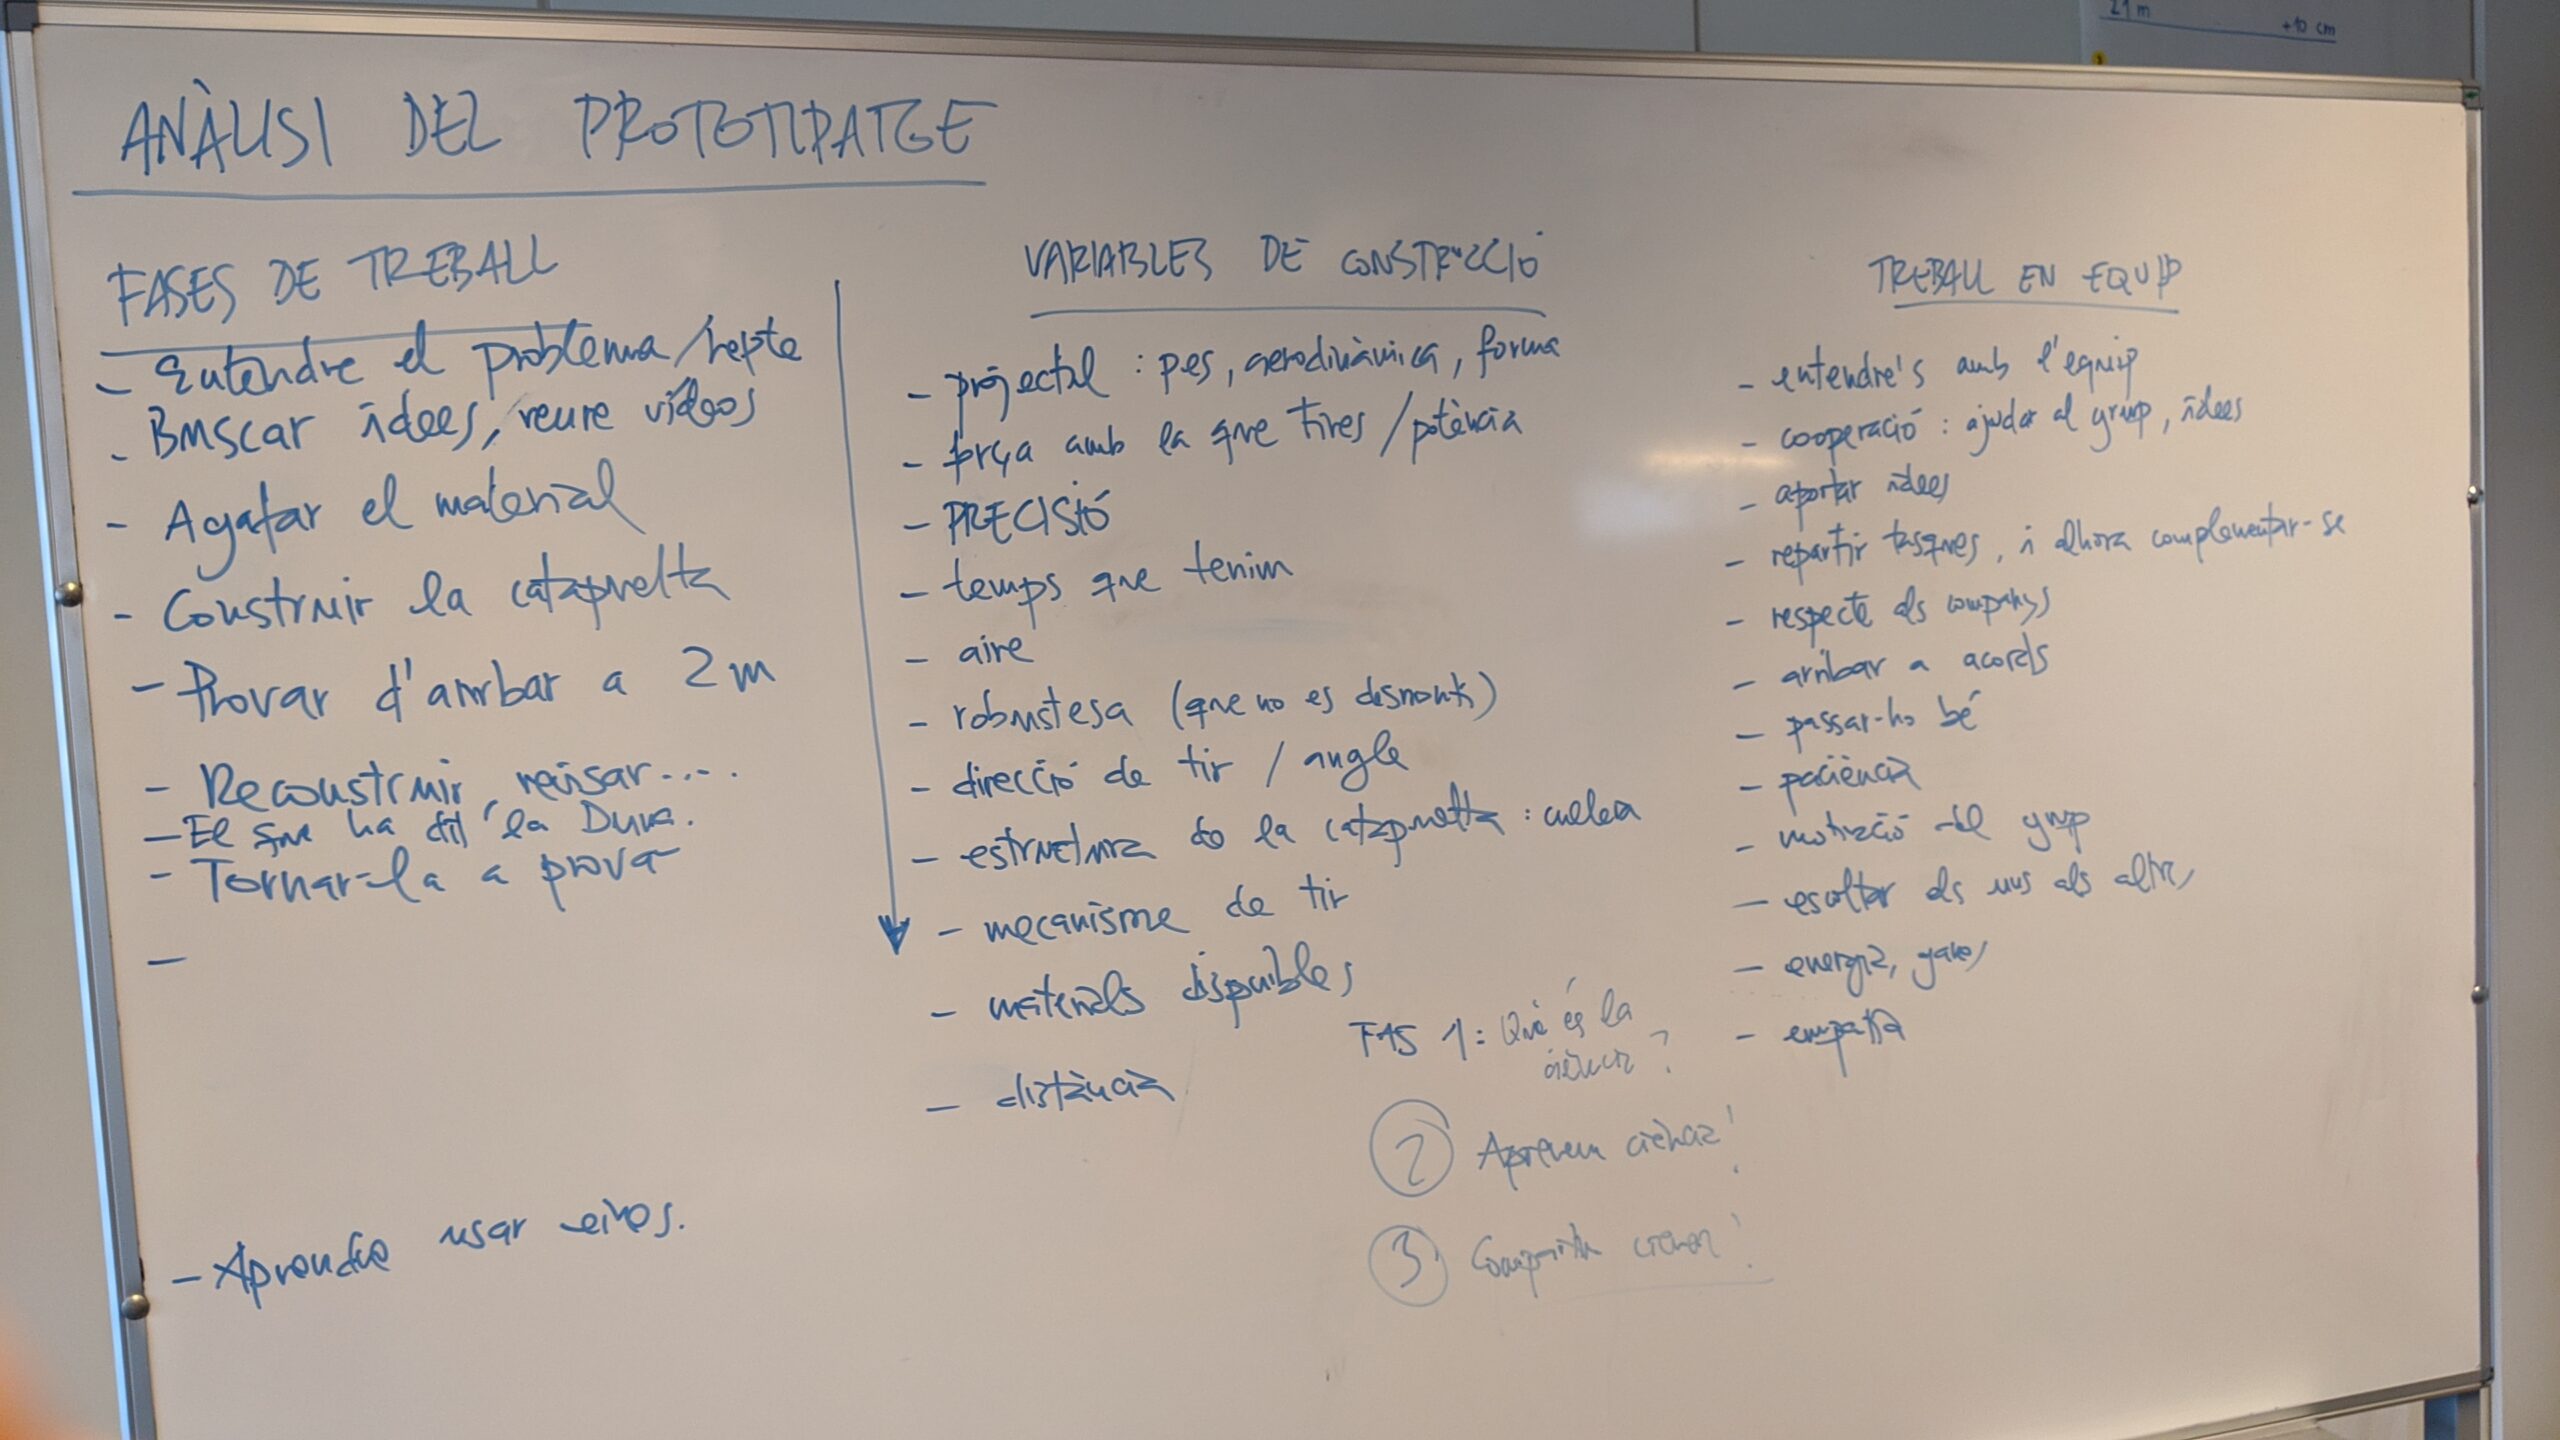 21 m
+10 cm
ANÀLISI DEL PROTOTIPATGE
FASES DE TREBALL
- Entendre el problema/repte
- Buscar idees, veure vídeos
- Agafar el material
- Construir la catapulta
- Provar d'arribar a 2 m
- Reconstruir, revisar....
- El que ha dit la
- Tornar-la a prova
-
- Aprendre usar eines.
VARIABLES DE CONSTRUCCIÓ
- projectil : pes, aerodinàmica, forma
- força amb la que tires / potència
- PRECISIÓ
- temps que tenim
- aire
- robustesa (que no es desmonti)
- direcció de tir / angle
- estructura de la catapulta : cullera
- mecanisme de tir
- materials disponibles
- distància
FAS 1 : Què és la
ciència ?
2 Aprenem ciència!
3 Compartim ciència!
TREBALL EN EQUIP
- entendre's amb l'equip
- cooperació : ajudar al grup, idees
- aportar idees
- repartir tasques, i alhora complementar-se
- respecte als companys
- arribar a acords
- passar-ho bé
- paciència
- motivació del grup
- escoltar els uns als altres
- energia, ganes
- empatia